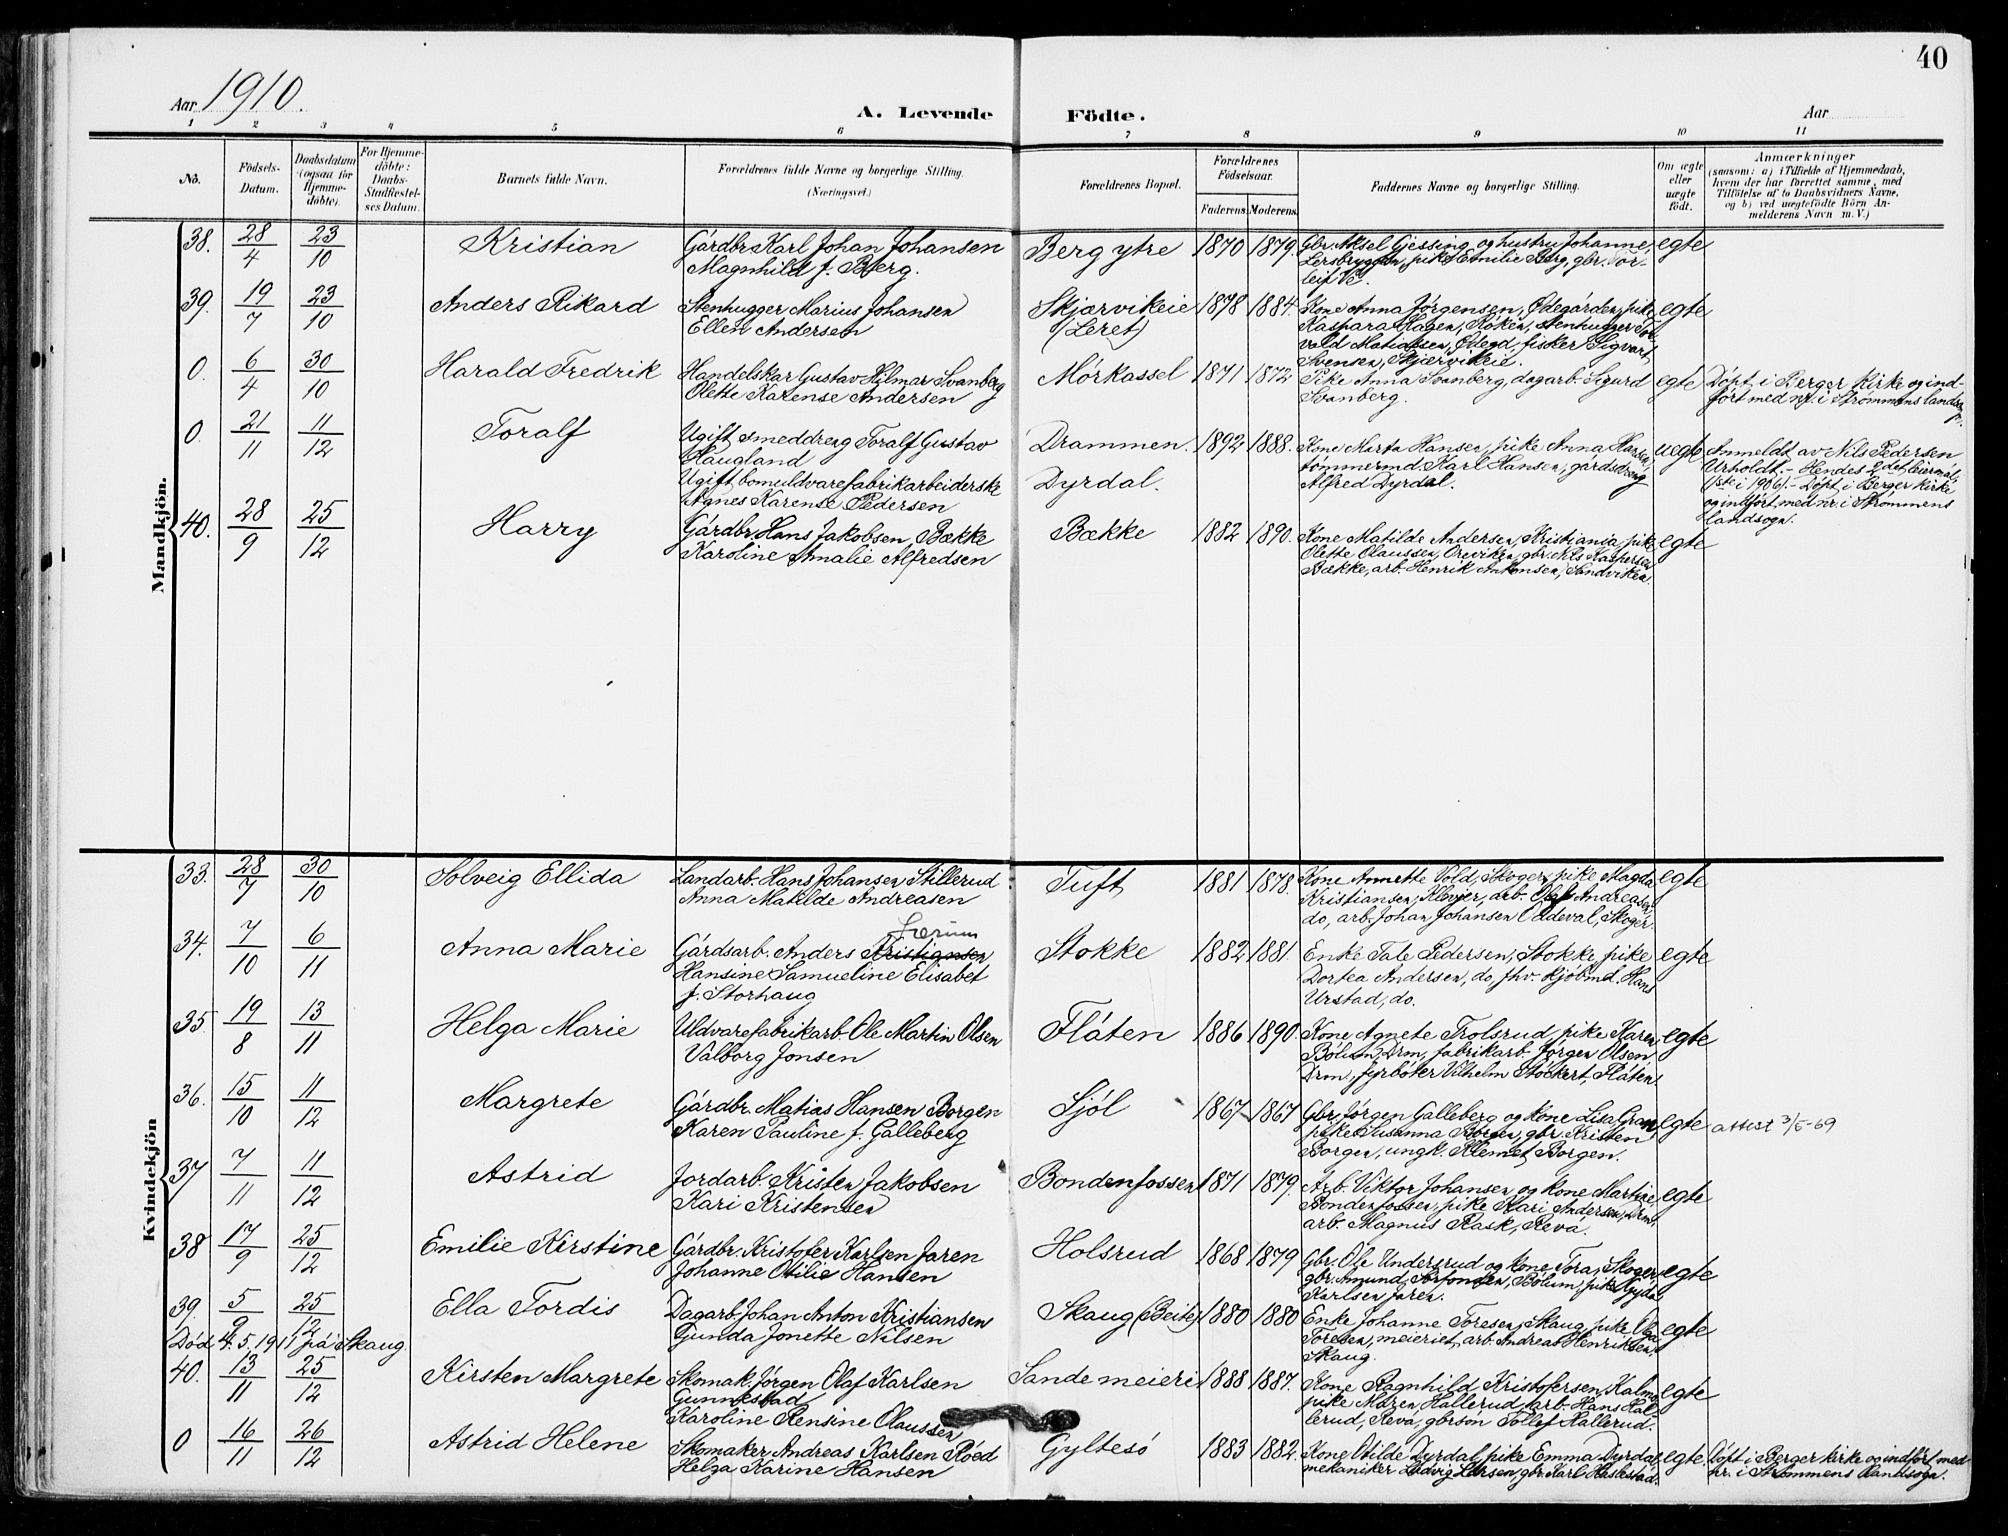 40
Aar 1910.
A. Levende Födte.
Aar
1 2 3 4 5 6 7 8 9 10 11
No.
Födsels-Datum.
Daabsdatum (ogsaa for Hjemme-döbte).
For Hjemme-döbte: Daabs-Stadfæstel-ses Datum.
Barnets fulde Navn.
Forældrenes fulde Navne og borgerlige Stilling. (Næringsvei.)
Forældrenes Bopæl.
Forældrenes Födselsaar. Faderens. Moderens.
Faddernes Navne og borgerlige Stilling.
Om ægte eller uægte födt.
Anmærkninger (saasom: a) i Tilfælde af Hjemmedaab, hvem der har forrettet samme, med Tilföielse af to Daabsvidners Navne, og b) ved uægtefödte Börn An-melderens Navn m. V.)
Mandkjön.
38. 28/4 23/10 Kristian
Gårdbr. Karl Johan Johansen
Magnhild f. Berg.
Berg ytre 1870 1879.
Gbr. Aksel Gjessing og hustru Johanne,
Lersbryggen, pike Emilie Berg, gbr. Tor-
leif
egte
39. 19/7 23/10 Anders Rikard
Stenhugger Marius Johansen
Ellen Andersen
Skjærvikeie
(Leret)
1878 1884.
Kone Anna Jørgensen, Ødegården, pike
Kaspara Hagen, Røken, stenhugger Tor-
vald Matiassen, Ødegd, fisker Sigvart
Svensen, Skjærvikeie.
egte
0. 6/4 30/10 Harald Fredrik
Handelskar Gustav Hilmar Svanberg
Olette Karense Andersen
Mörkassel 1871 1872
Pike Anna Svanberg, dagarb. Sigurd
Svanberg.
egte
Döpt i Berger kirke og ind-
fört med nr. i Strømmens landsogn.
0. 21/11 11/12 Toralf
Ugift smeddreng Toralf Gustav
Haugland
Ugift bomuldvarefabrikarbeiderske
Agnes Karense Pedersen
Drammen.
Dyrdal.
1892 1888.
Kone Marta Hansen, pike Anna Hansen,
tömmermd. Karl Hansen, gårdsdreng
Alfred Dyrdal.
uegte
Anmeldt av Nils Pedersen
Urholdt. - Hendes 2det leiermål,
(1ste i 1906). - Döpt i Berger kirke
og indfört med nr. i Strømmens
landsogn.
40. 28/9 25/12 Harry
Gårdbr. Hans Jakobsen Bække
Karoline Amalie Alfredsen
Bække 1882 1890.
Kone Matilde Andersen, Kristiania, pike
Olette Olaussen, Oreviken, gbr. Nils Kaspersen
Bække, arb. Henrik Antonsen, Sandviken.
egte
Kvindekjön
33. 28/7 30/10 Solveig Ellida
Landarb. Hans Johansen Stillerud
Anna Matilde Andreasen
Tuft 1881 1878.
Kone Annette Vold, Skoger, pike Magda
Kristiansen, Klevjer, arb. Olaf Andreasen
do, arb. Johan Johansen Oddeval, Skoger.
egte
34. 7/10 6/11 Anna Marie
Særum
Gårdsarb. Anders Kristiansen
Hansine Samueline Elisabet
f. Storhaug
Stokke 1882 1881.
Enke Tale Pedersen, Stokke, pike
Dortea Andersen, do, fhv. kjöbmd. Hans
Urstad, do.
egte
35 19/8 13/11 Helga Marie
Uldvarefabrikarb. Ole Martin Olsen
Valborg Jonsen
Flåten 1886 1890.
Kone Agnete Trolsrud, pike Karen
Bölum, Drm, fabrikarb. Jörgen Olsen
Drm, fyrböter Vilhelm Stöckert, Flåten.
egte
36. 15/10 11/12 Margrete
Gårdbr. Matias Hansen Borgen
Karen Pauline f. Galleberg
Sjöl 1867 1867
Gbr. Jörgen Galleberg og kone Lisa, Gran,
pike Susanna Borgen, gbr. Kristen
Borgen, ungk. Klemet Borgen.
egte
attest 3/5-69
37 7/11 11/12 Astrid
Jordarb. Kristen Jakobsen
Kari Kristensen
Bondenfossen 1871 1879.
Arb. Viktor Johansen og kone Martine
Bondenfossen, pike Kari Andersen, Drm,
arb. Magnus Rask, Reva.
egte
38 17/9 25/12 Emilie Kirstine
Gårdbr. Kristofer Karlsen Jaren
Johanne Otilie Hansen
Holsrud 1868 1879
Gbr. Ole Undersrud og kone Tora, Skoger,
gbr. Amund Sörfonden, Bölum, pike Gyda
Karlsen Jaren.
egte
39. 5/9 25/12 Ella Tordis
Död 4.5.1911 på Skaug
Dagarb. Johan Anton Kristiansen
Gunda Jonette Nilsen
Skaug (Beite) 1880 1880
Enke Johanne Toresen, Skaug, pike Olga
Toresen, meieriet, arb. Andreas Henriksen,
Skaug.
egte
40. 13/11 25/12 Kirsten Margrete
Skomak. Jörgen Olaf Karlsen
Gunnestad
Karoline Rensine Olaussen
Sande meieri 1888 1887.
Kone Ragnhild Kristofersen, Kalmo,
pike Maren Hallerud, arb. Hans Hal-
lerud, Reva, gbrsön Tollef Hallerud.
egte
0 16/11 26/12 Astrid Helene
Skomaker Andreas Karlsen Röed
Helga Karine Hansen
Gyltesö 1883 1882.
Kone Otilde Dyrdal, pike Emma Dyrdal,
mekaniker Ludvig Larsen, gbr. Karl Haslestad.
egte.
Döpt i Berger kirke og indfört med
nr. i Strömmens landsogn.